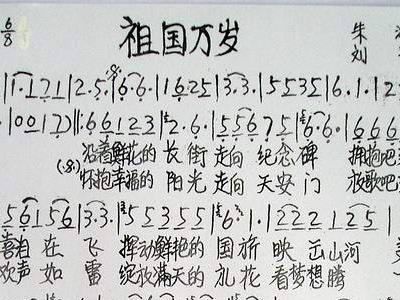 6/8 祖国万岁 朱
刘
|1·171|2·5·|6·6·|1625|3·3·|5535|6·1·|12
|0017)‖:66123|2·6·|55675|6·6·|666
沿着鲜花的 长 街 走向 纪念 碑 拥抱吧
怀抱幸福的 阳 光 走向 天安 门 放歌吧
56156|3·3·|55355|6·1·|222 125|
喜泪 在 飞 挥动鲜艳的 国 旗 映 山河
欢声 如 雷 绽放满天的 礼 花 看梦想腾